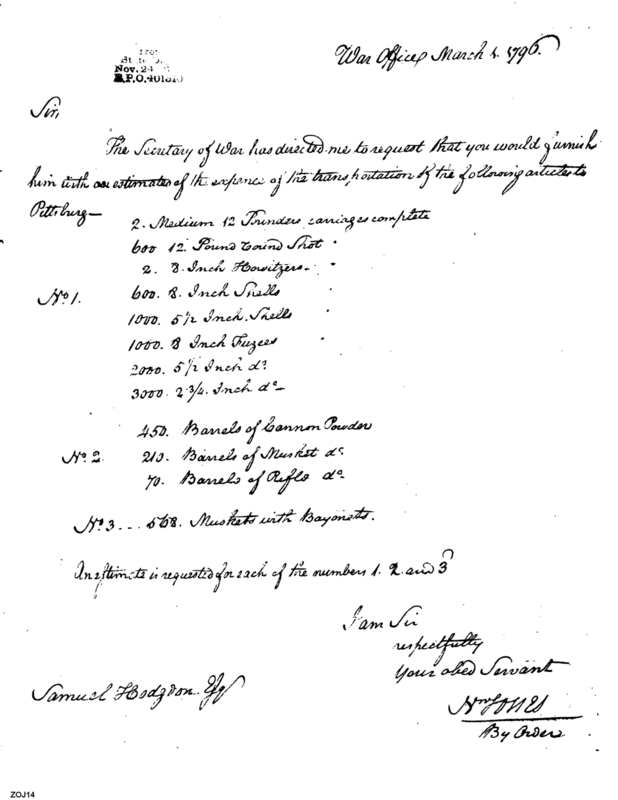 Nov. 24
R.P.O. 401319
War Office March 1. 1796.
Sir,
The Secretary of War has directed me to request that you would furnish
him with an estimate of the expence of the transportation of the following articles to
Pittsburg—
2. Medium 12 Pounders carriages complete
600 12. Pound round Shot "
2. 8 Inch Howitzers. "
No. 1. 600. 8. Inch Shells
1000. 5 1/2 Inch. Shells "
1000. 8 Inch Fuzees "
2000. 5 1/2 Inch do.
3000. 2 3/4. Inch do—
450. Barrels of Cannon Powder
No. 2. 210. Barrels of Musket do.
70. Barrels of Rifle do.
No. 3 ... 568. Muskets with Bayonets.
An estimate is requested for each of the numbers 1. 2. and 3
I am Sir
respectfully
Your obed Servant
Wm Jones
By Order
Samuel Hodgdon Esq
ZOJ14